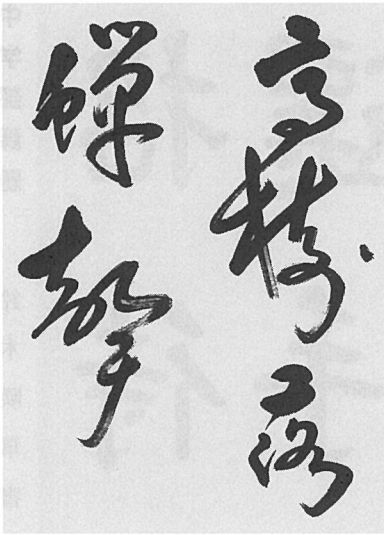 高樹落
蟬聲